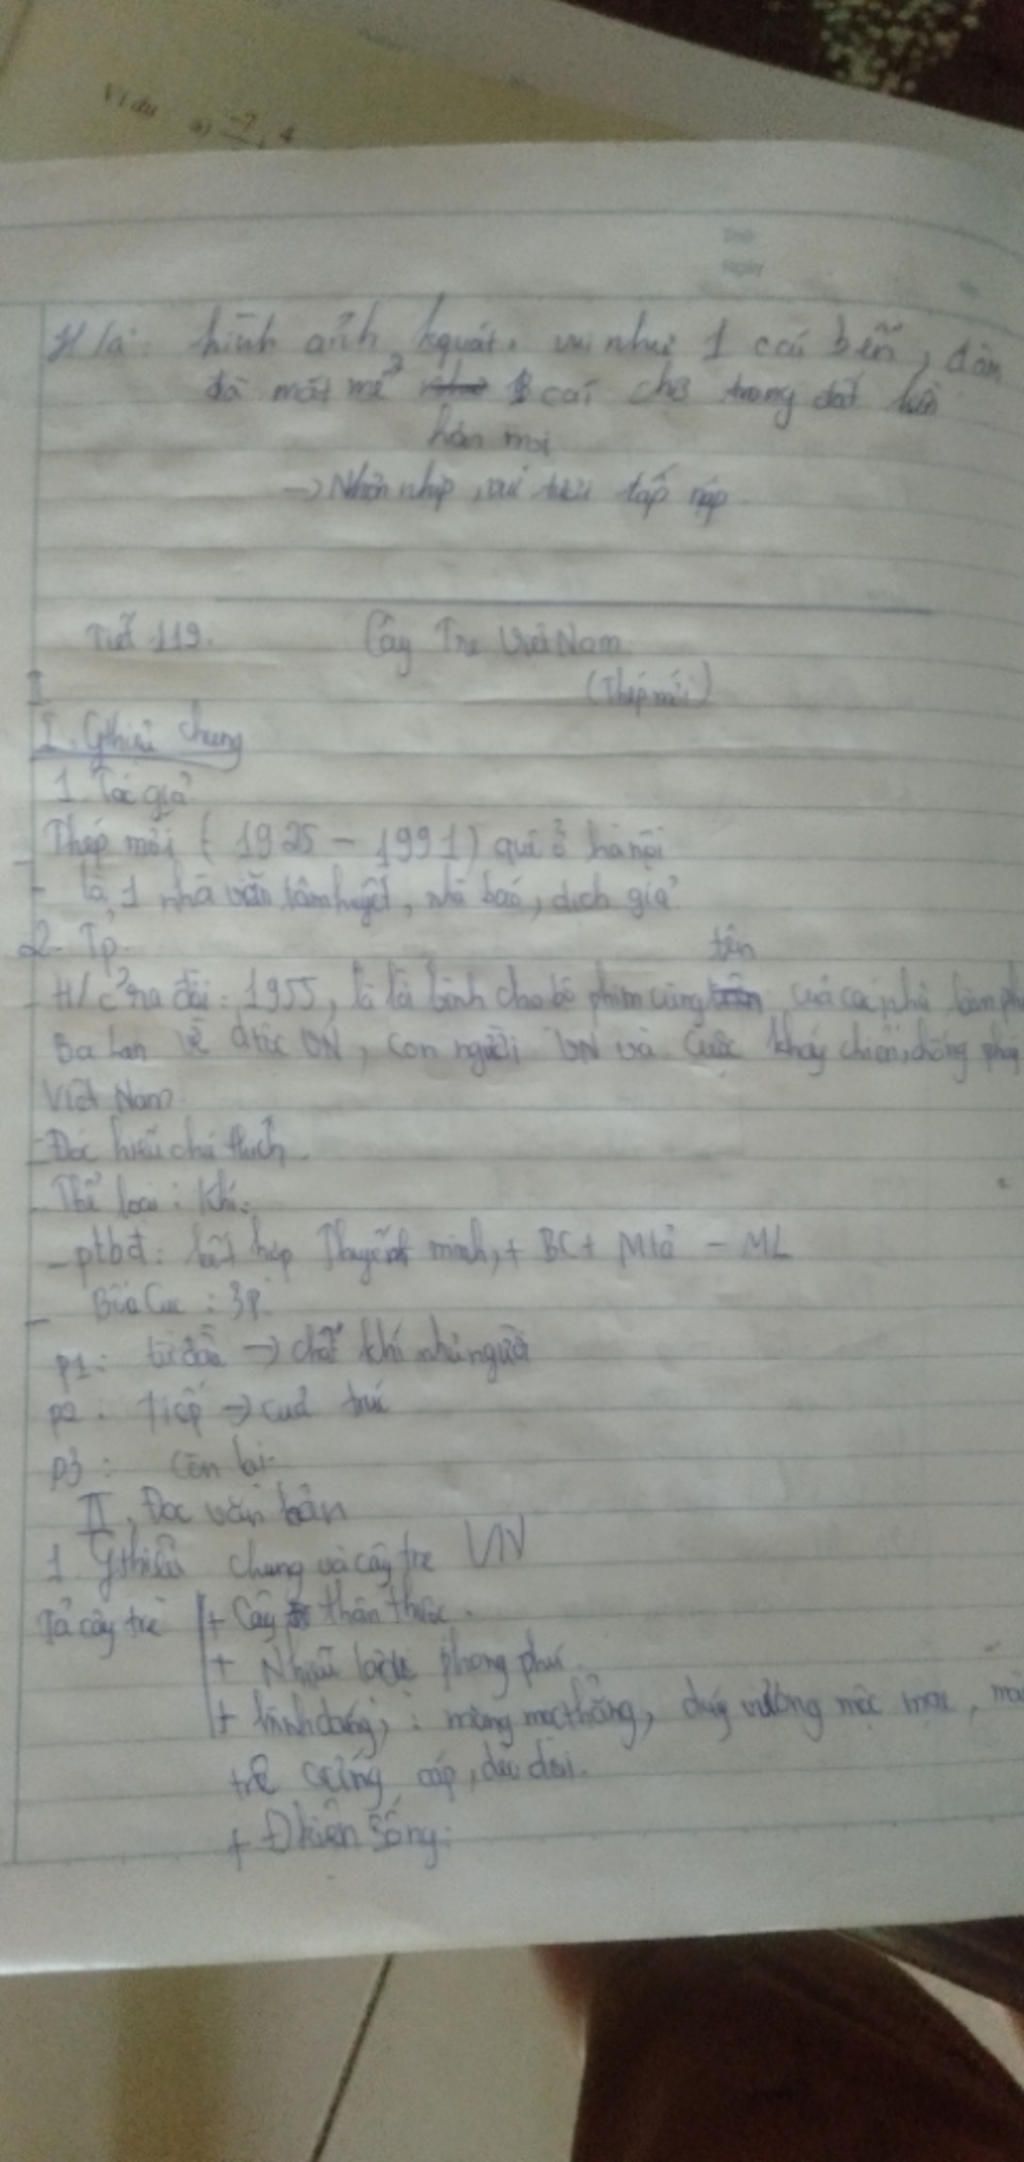 Ví dụ a) -7, 4
Thứ
Ngày
H/a: hình ảnh kquát. vui như 1 cái bến, đậm
đà mát mẻ cái chợ trong đất liền
→ Nhộn nhịp, vui tươi tấp nập
Tiết 119. Cây Tre Việt Nam
(Thép mới)
I
I. Gthiệu chung
1. Tác giả
Thép mới (1925 - 1991) quê ở hà nội
- là 1 nhà văn, nhà báo, dịch giả
2. Tp
tên
- H/c ra đời: 1955, là lời bình cho bộ phim cùng của các nhà làm ph
Ba Lan về VN, con người VN và cuộc kháy chiến chống pháp
Việt Nam
- Đọc hiểu chú thích.
- Thể loại: Kí.
- ptbđ: kết hợp Thuyết minh, + BC + Mtả - ML
- Bố Cục: 3p
p1: từ đầu → chí khí như người
p2: Tiếp → của trúc
p3: Còn lại
II. Đọc văn bản
1 Gthiệu chung về cây tre VN
Tả cây tre + Cây thân thuộc.
+ Nhiều loại phong phú.
+ hình dáng: măng mọc thẳng, dáng vươn mộc mạc, mà
tre cứng cáp, dẻo dai.
+ Đkiện sống: